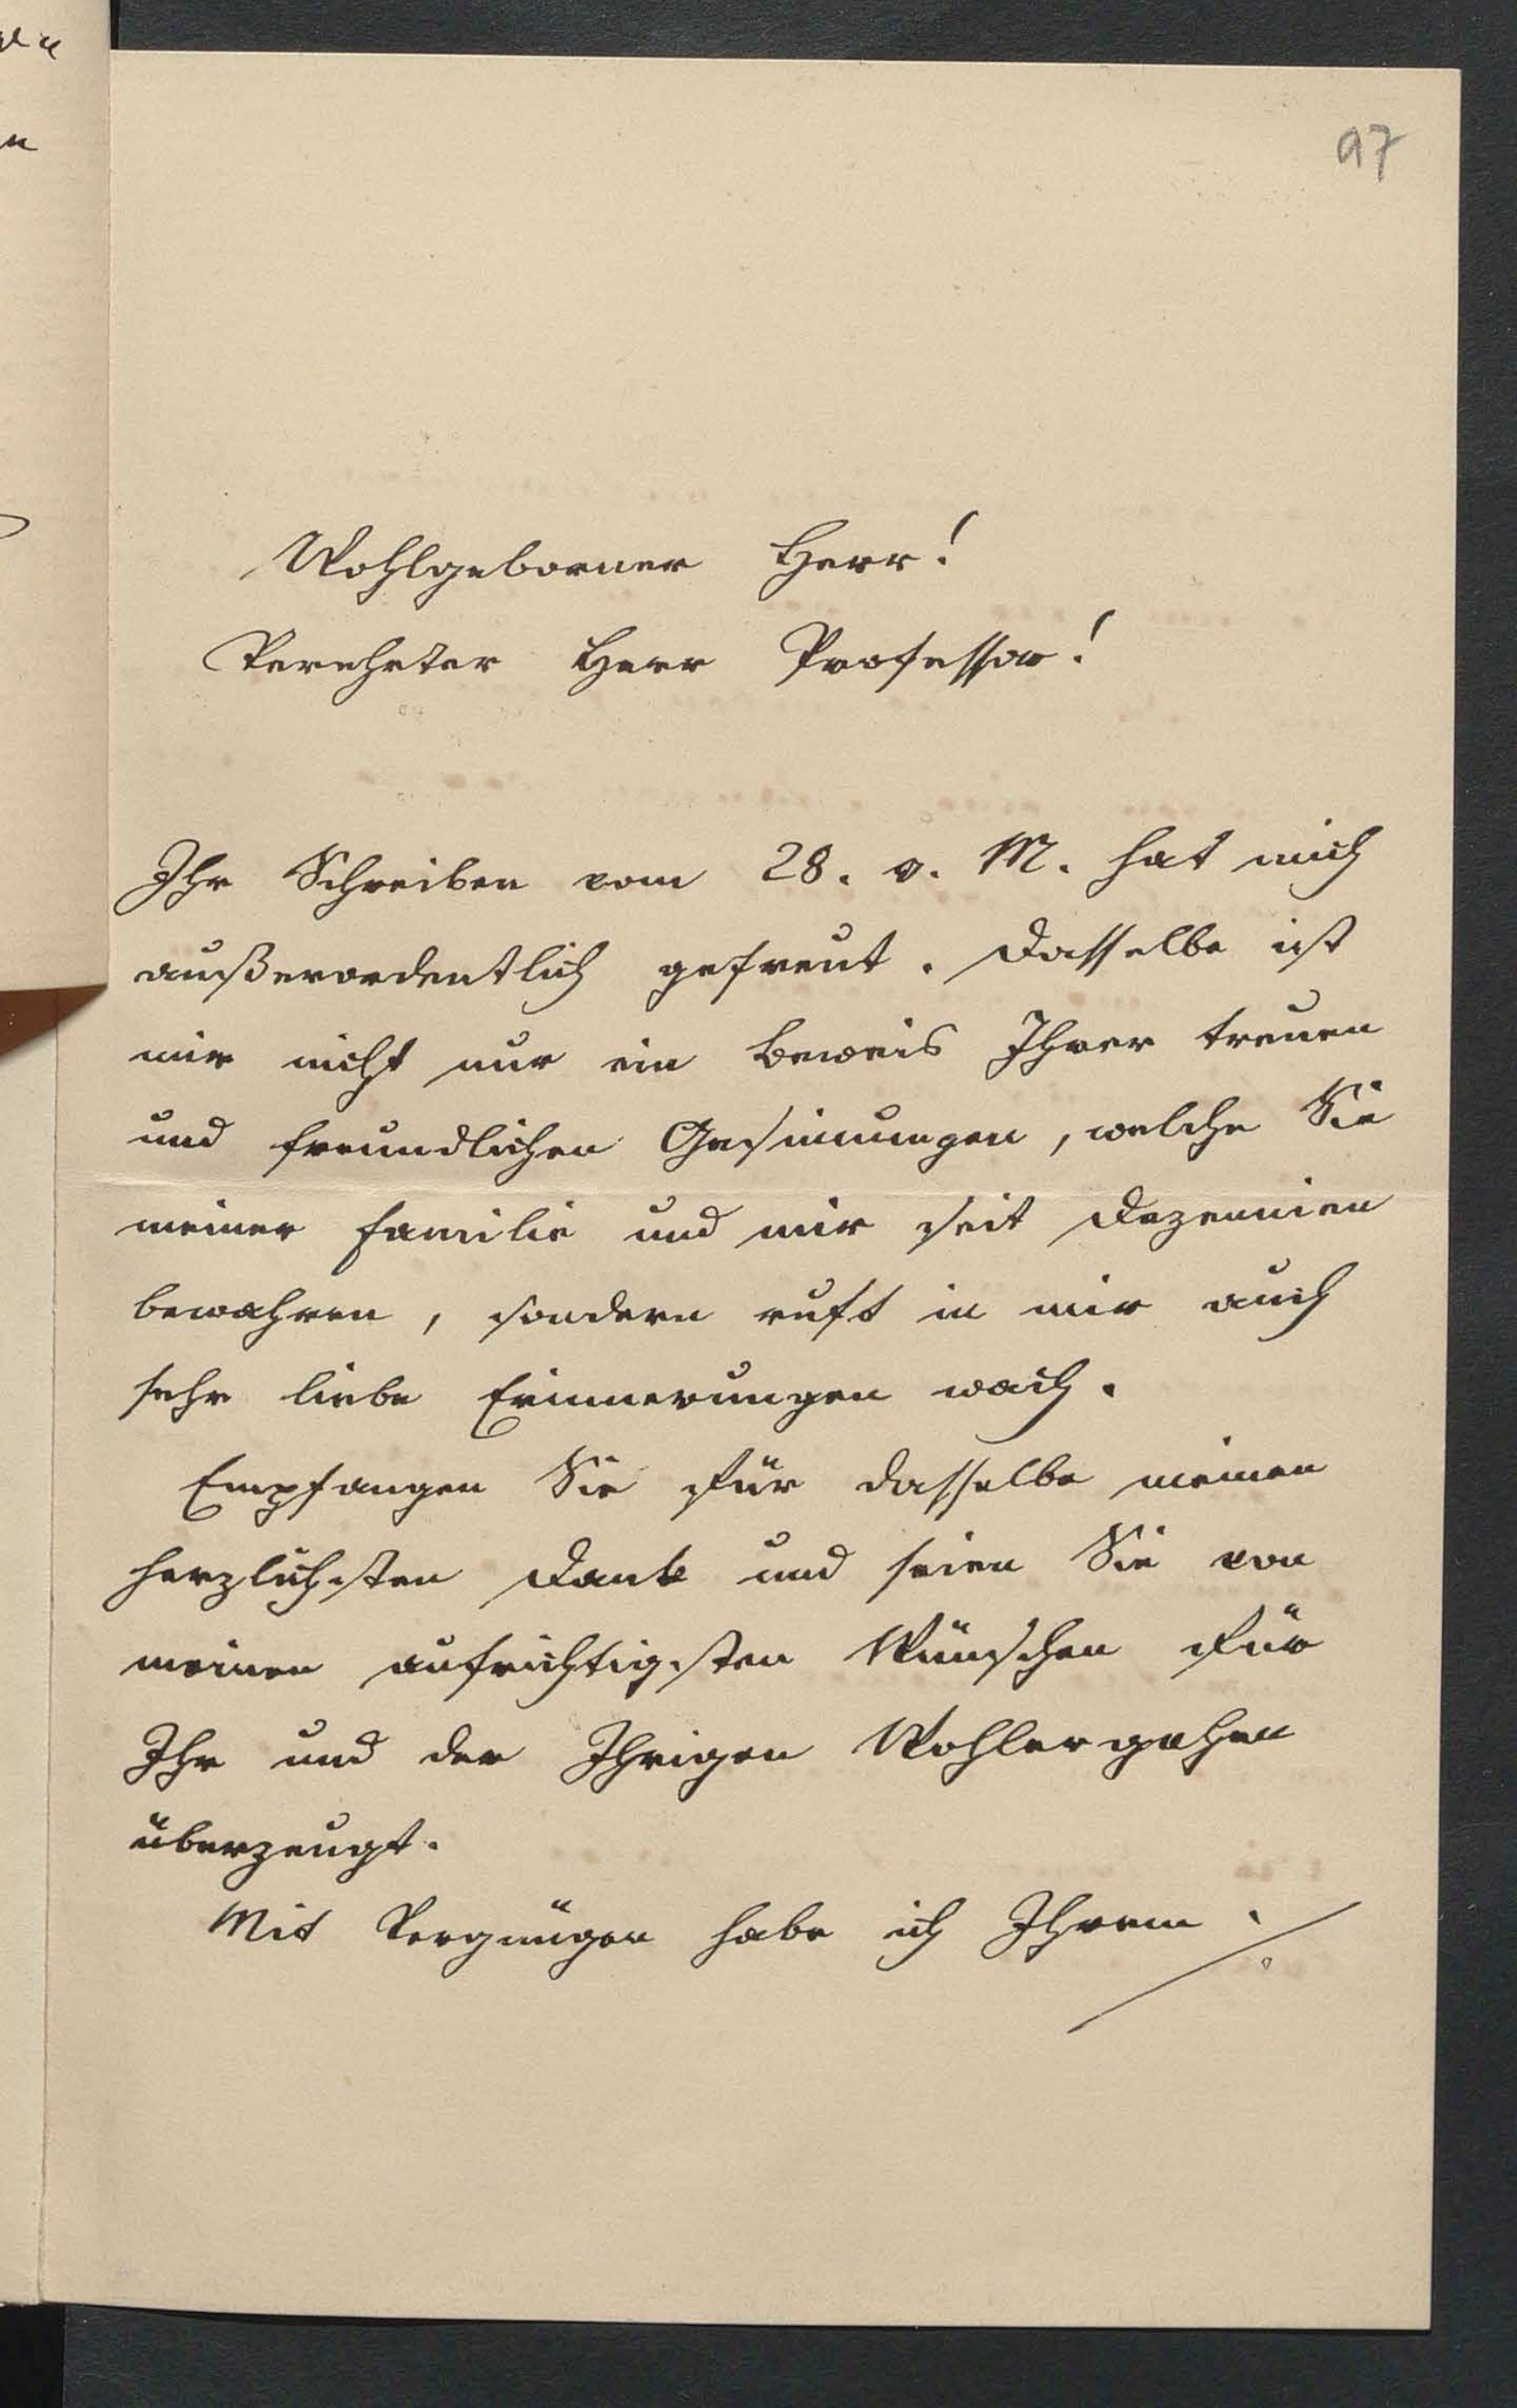 97
Wohlgeborner Herr!
Verehrter Herr Professor!
Ihr Schreiben vom 28. v. M. hat mich
außerordentlich gefreut. Dasselbe ist
mir nicht nur ein Beweis Ihrer treuen
und freundlichen Gesinnungen, welche Sie
meiner Familie und mir seit Dezennien
bewahren, sondern ruft in mir auch
sehr liebe Erinnerungen wach.
Empfangen Sie für dasselbe meinen
herzlichsten Dank und seien Sie von
meinen aufrichtigsten Wünschen für
Ihr und der Ihrigen Wohlergehen
überzeugt.
Mit Vergnügen habe ich Ihrem ./.